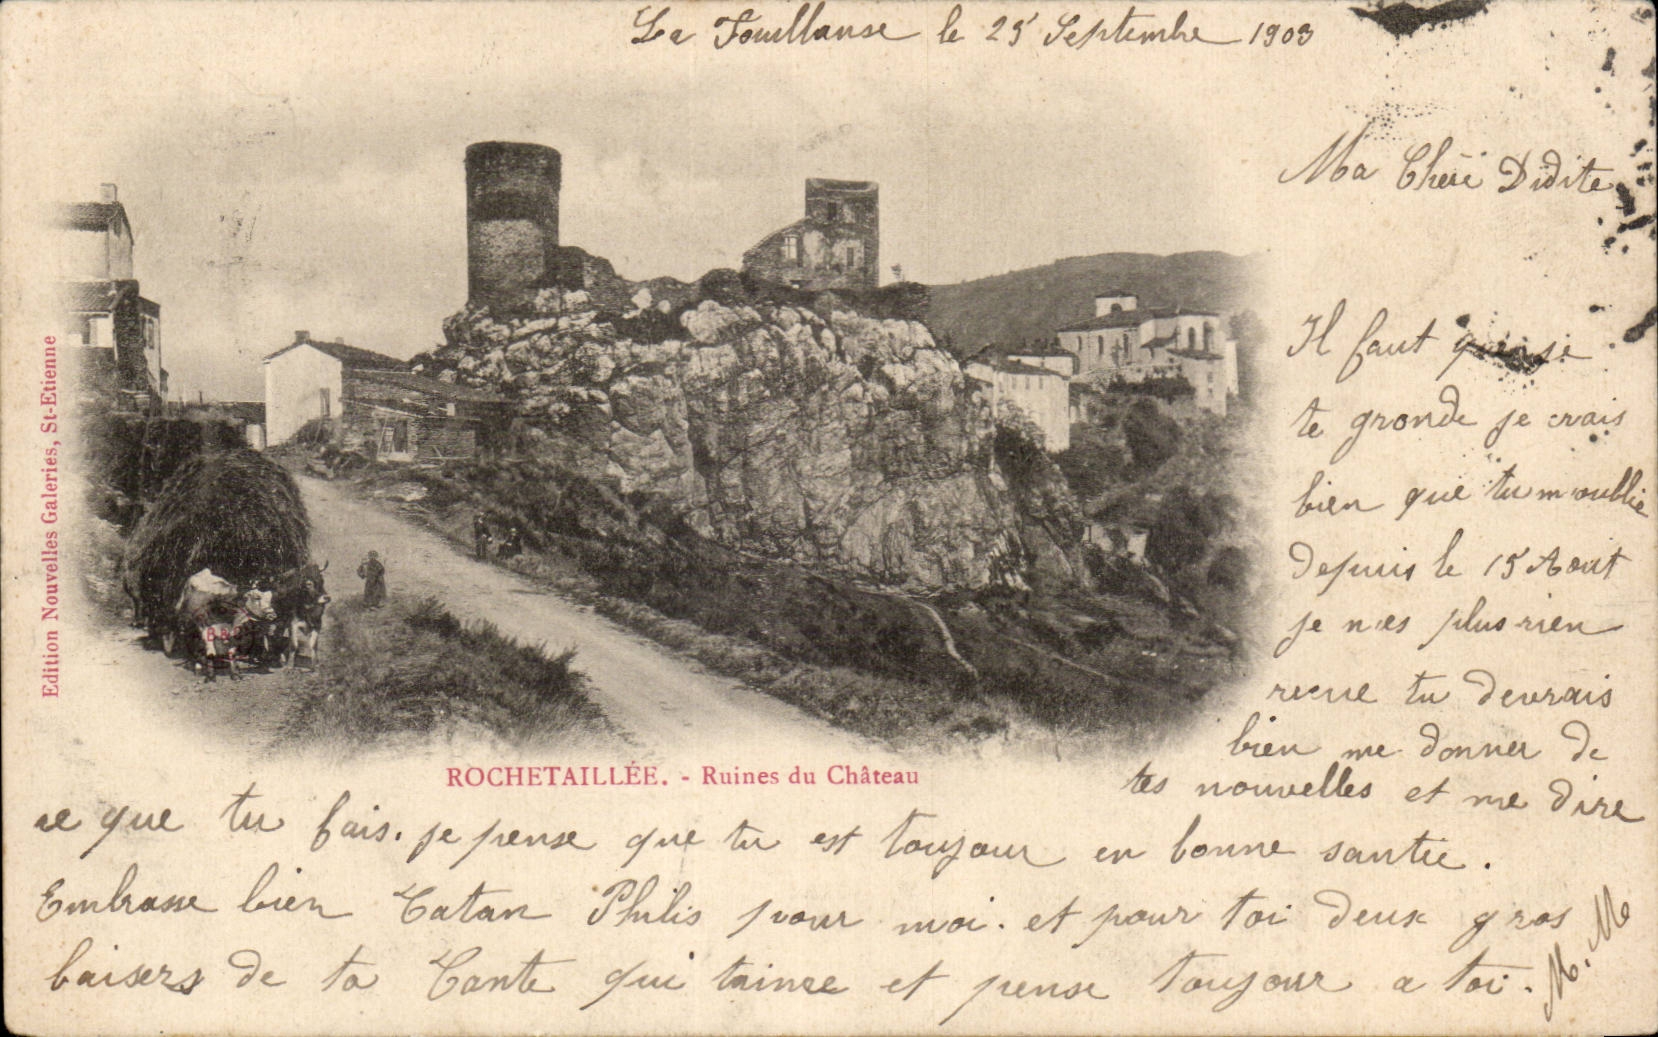 La Fouillouse le 25 Septembre 1903
Ma Chèie Didite
Il faut que je
te gronde je crais
bien que tu m'oublie
depuis le 15 Aout
je n'es plus rien
recue tu devrais
bien me donner de
tes nouvelles et me dire
ce que tu fais. je pense que tu est toujour en bonne santie.
Embrasse bien Tatan Philis pour moi. et pour toi deux gros
baisers de ta Tante qui t'aimee et pense toujour a toi.
M. M
ROCHETAILLÉE. - Ruines du Château
Edition Nouvelles Galeries, St-Etienne